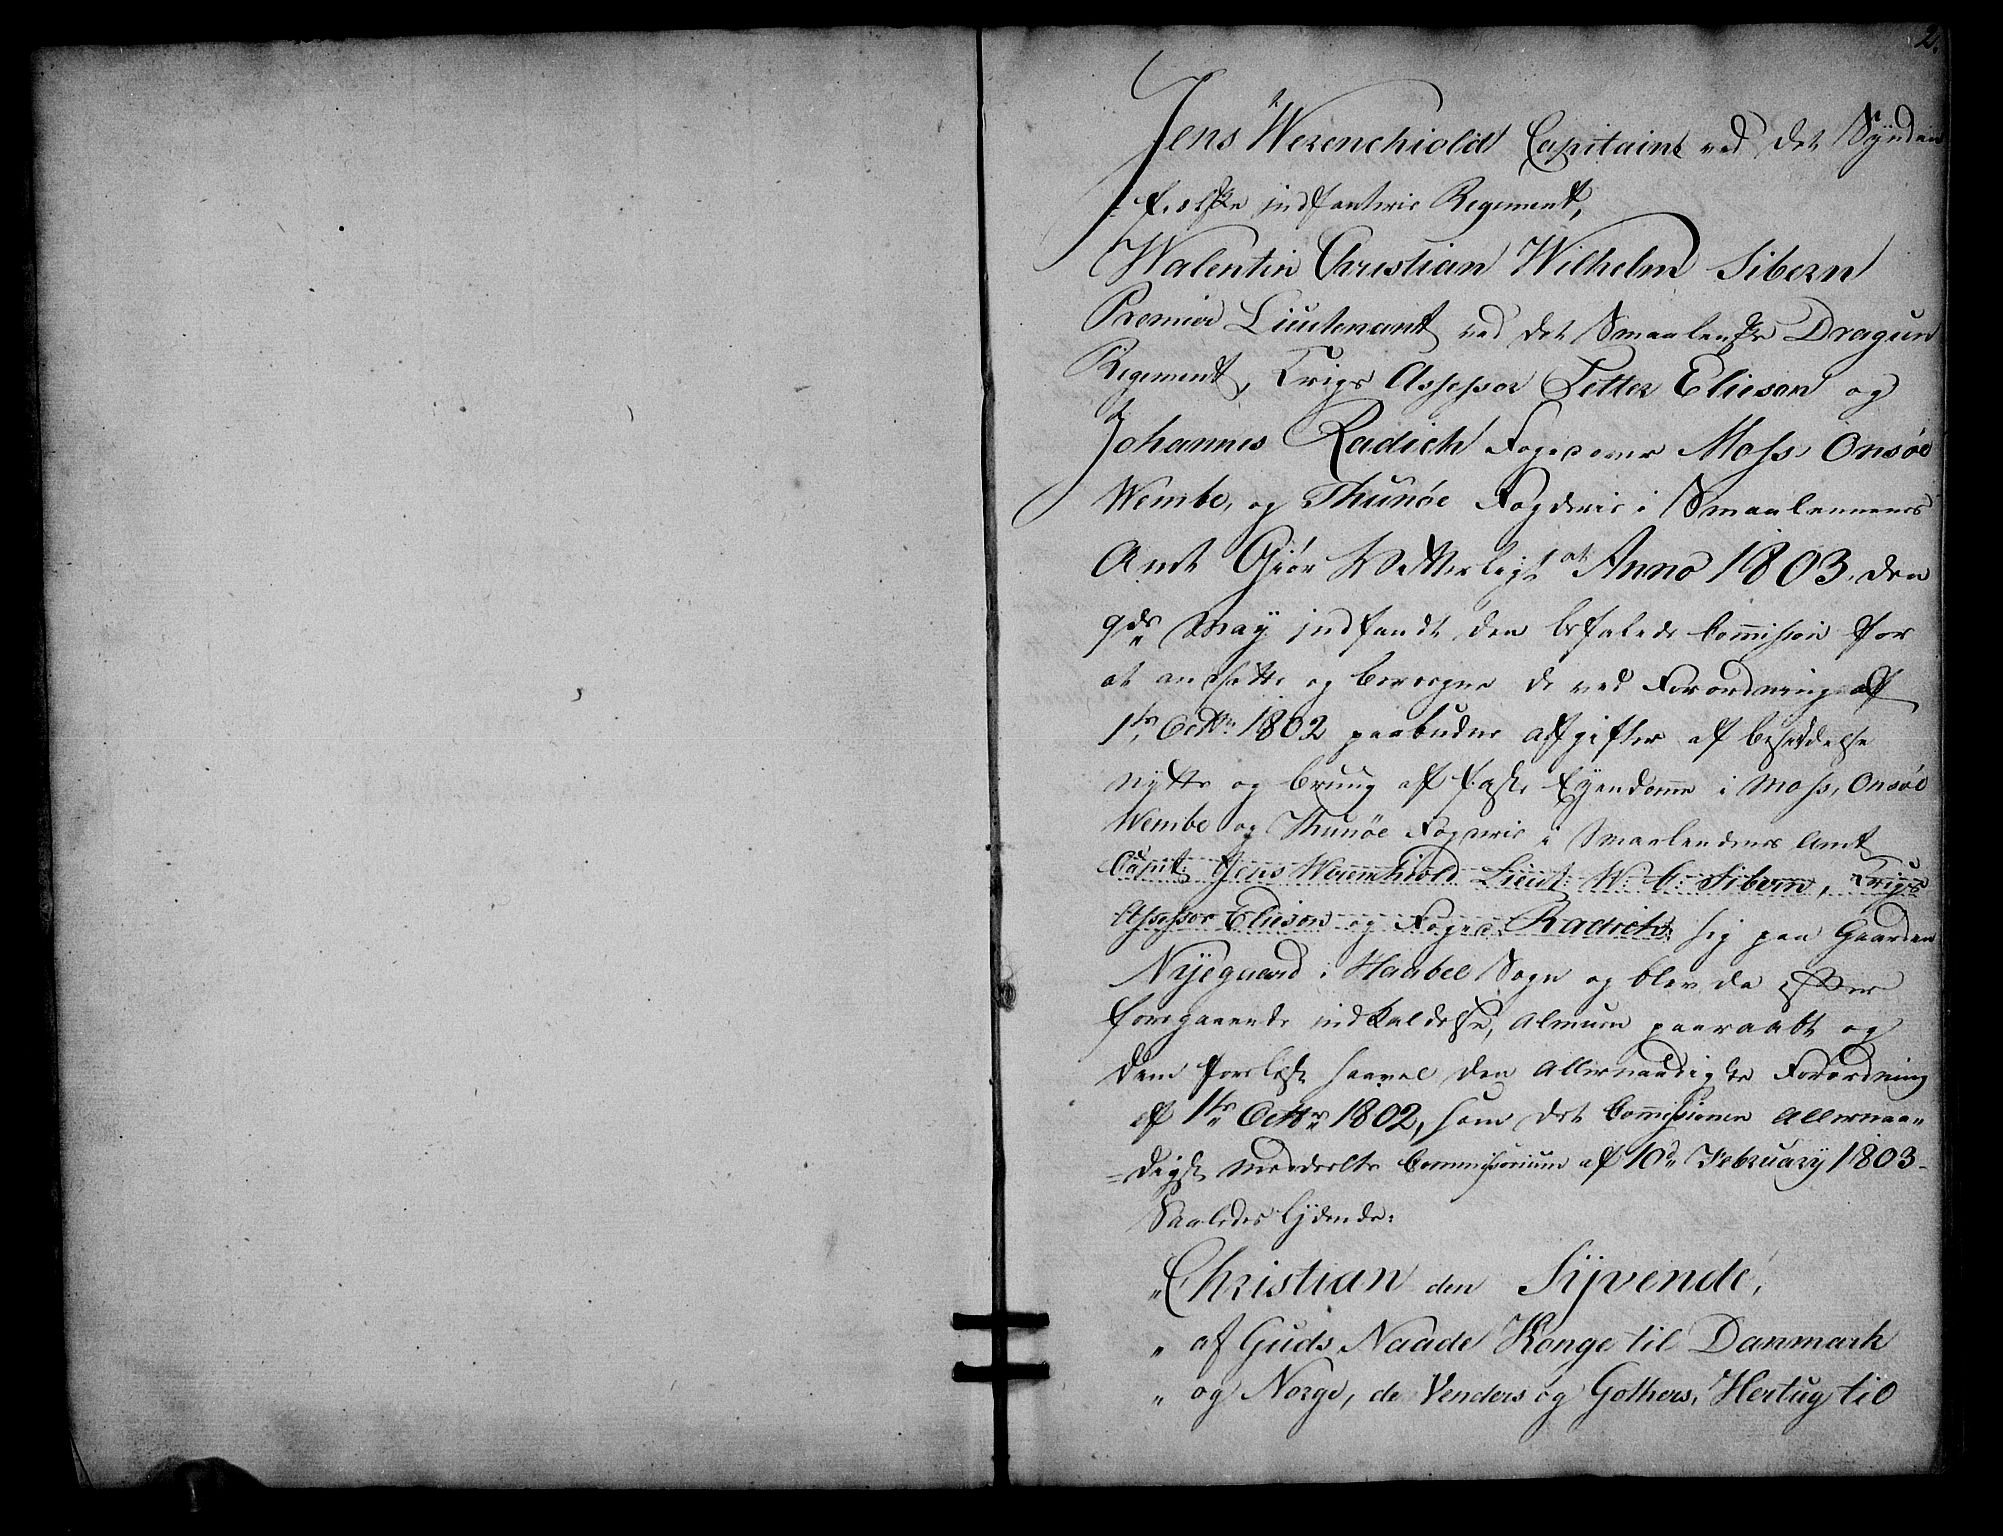 2.
Jens Werenchiold Capitaine ved det Synden
=fieldske jndfanterie Regement,
Walentin Christian Wilhelm Sibern
Premier Lieutenant ved det Smaalenske Dragun
Regement, Krigs Assessor Petter Elieson og
Johannes Radich Foged over Moss, Onsøe
Wembe, og Thunøe Fogderie i Smaalennenes
Amt Giør Witterligt at Anno 1803, den
9de May jndfandt den befalede Commission for
at ansætte og beregne de ved Forordning af
1te Octbr 1802 paabudne Afgifter af besiddelse
nytte og brug af faste Eyendomme i Moss, Onsøe
Wembe og Thunøe Fogderie i Smaalendenes Amt
Capit: Jens Werenchiold Lieut: W: C: Sibern, Krigs
Assessor Elieson og Foged Radich sig paa Gaarden
Nyegaard i Haabel Sogn og blev da efter
foregaaende indkaldelse, Almuen paaraabt og
dem forelæst saavel den Allernaadigste Forordning
af 1te Octbr 1802, som det Commissionen Allernaa=
=digst meddeelte Commissorium af 10de February 1803
Saaledes lydende:
"Christian den Syvende,
" af Guds Naade Konge til Danmark
" og Norge, de Venders og Gothers, Hertug til